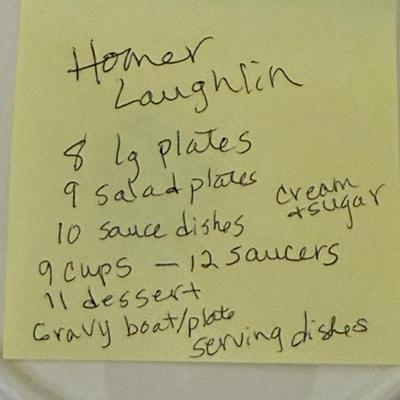 Homer
Laughlin
8 lg plates
9 salad plates
cream
+sugar
10 sauce dishes
9 cups — 12 saucers
11 dessert
Gravy boat/plate
serving dishes